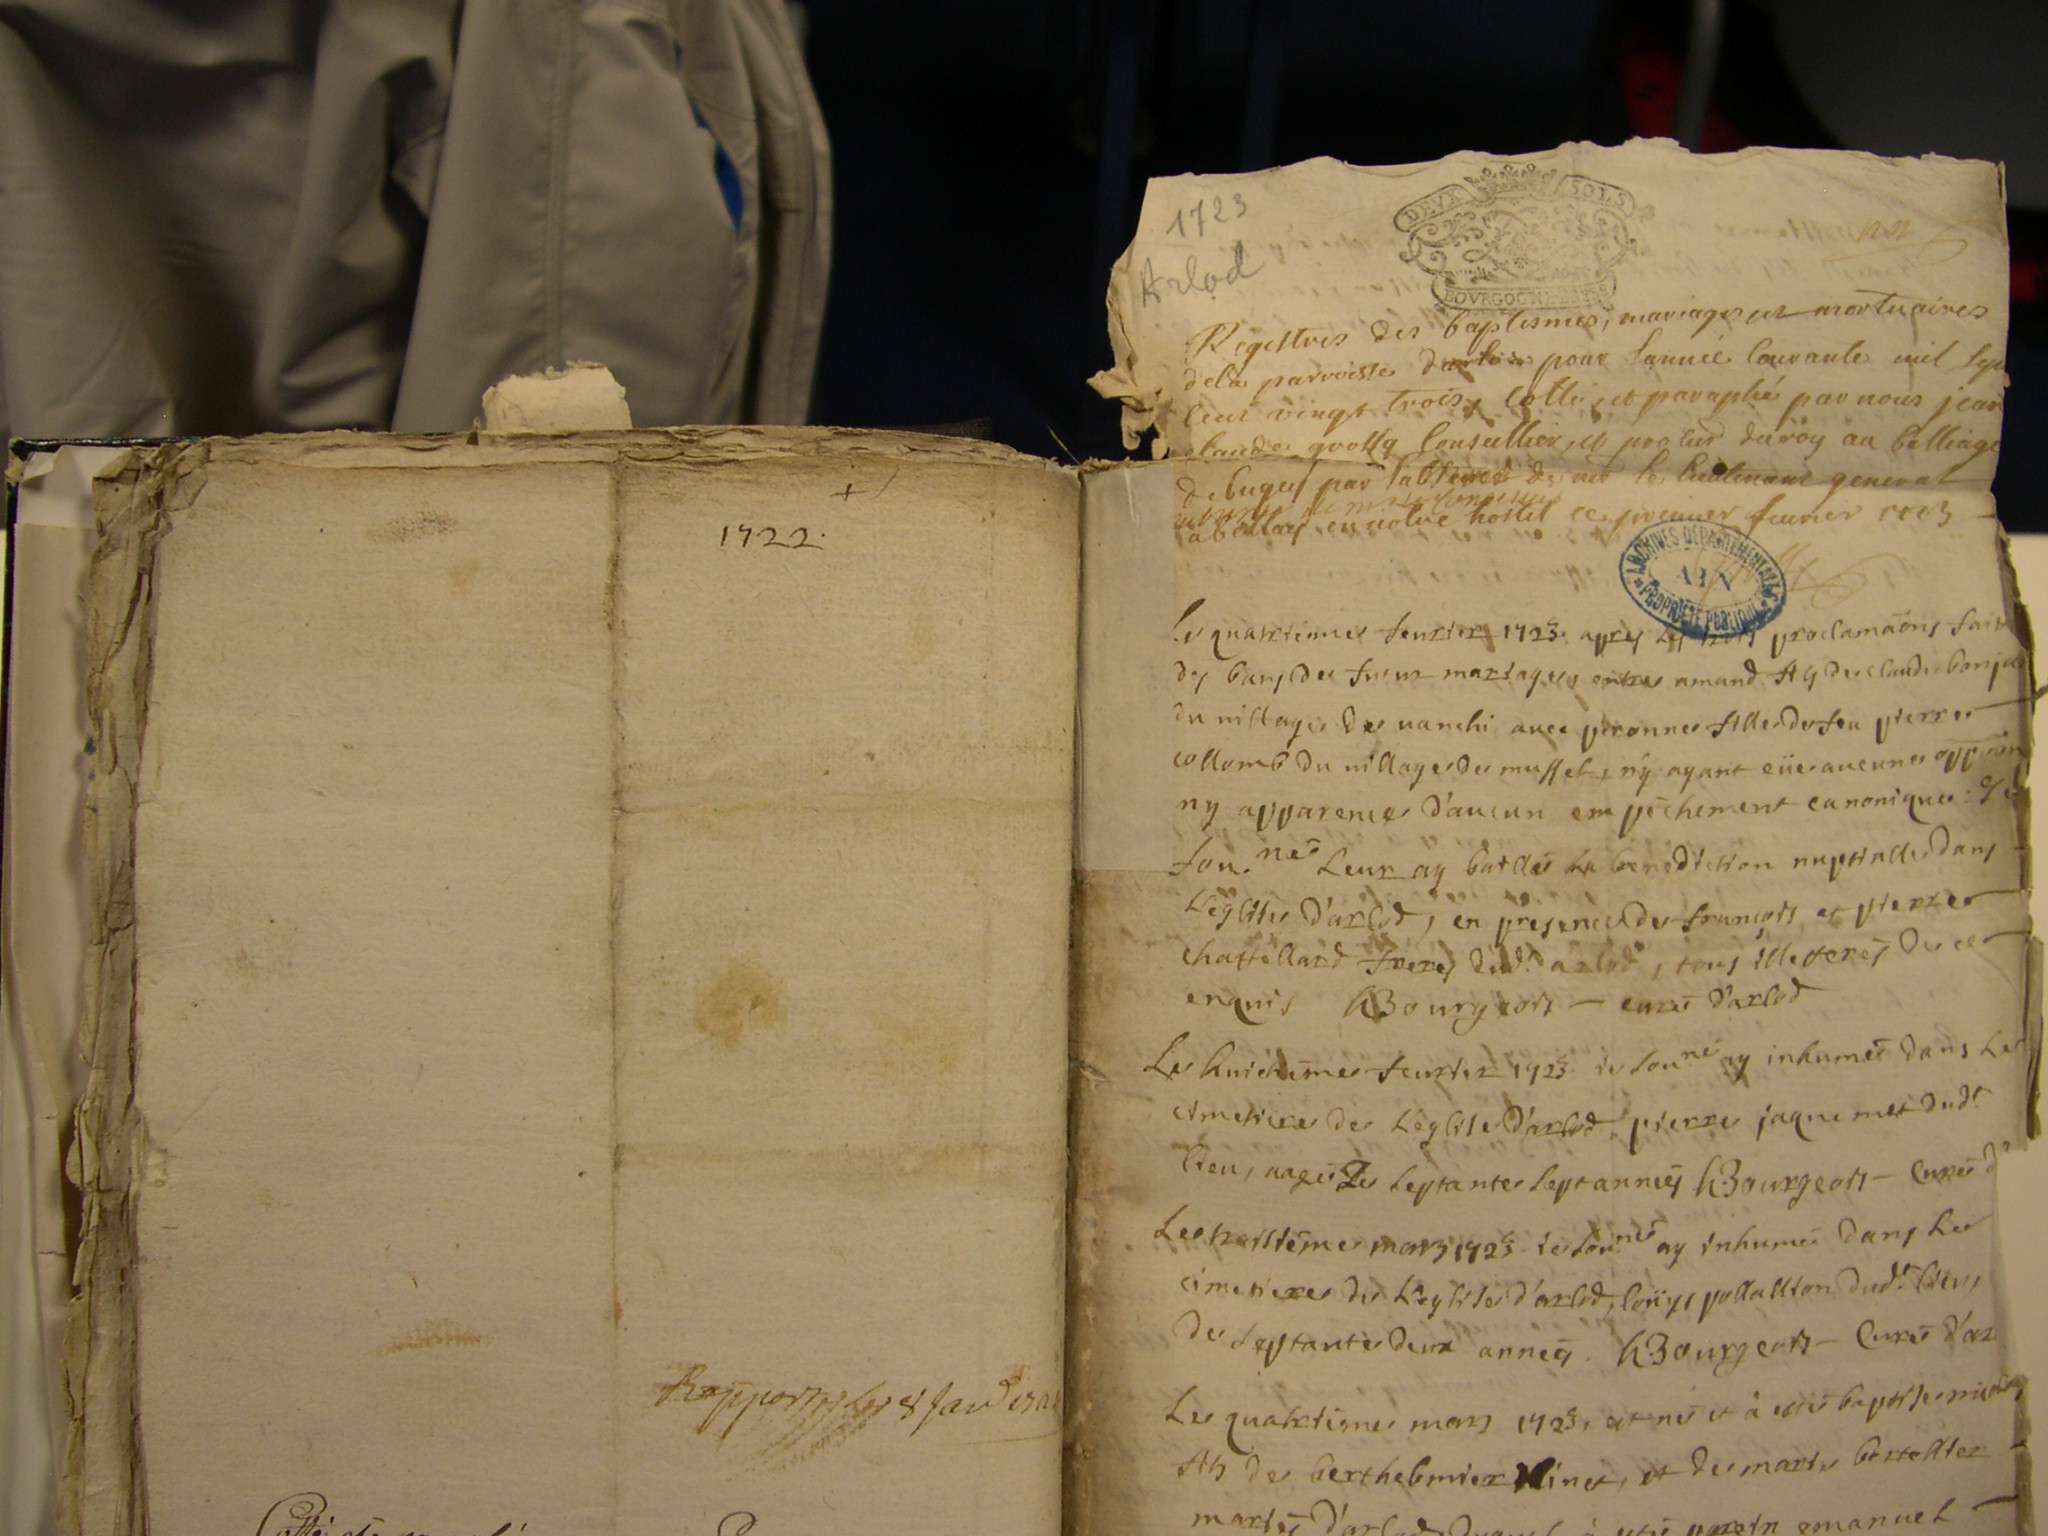 1722.
Rapporté le 8 Jan
1723
Arlod
DEVX SOLS
BOVRGOGNE
Registres des baptismes, mariages et mortuaires
dela parroisse darlod pour l'année Courante mil sept
Cent vingt trois, Cotté et paraphé par nous jean
claude Conseillier et procur du roy au balliage
de bugey par l'absence de mr le lieutenant general
a bellay en notre hostel ce premier feurier 1723
ARCHIVES DEPARTEMENTALES
AIN
PROPRIETE PUBLIQUE
Le quatrieme feurier 1723 apres les trois proclamaons fait
des bans de futur mariage entre amand fils de claude
du uillage de uanchi auec peronne fille de feu pierre
collomb du uillage de mussel, n'y ayant eüe aucune
ny apparence d'aucun empechement canonique: Je
sou.né Leur ay baillé La benediction nuptialle dans
L'eglise d'arlod, en presence de françois et pierre
chastellard freres dud.t arlod, tous illetres de ce
enquis Bourgeois curé d'arlod
Le huictieme feurier 1723 ie sou.né ay inhumé dans Le
cimetiere de L'eglise d'arlod pierre jaquemet dud.t
lieu, aagé de septante sept années Bourgeois Curé d'
Le troisieme mars 1723 ie sou.né ay inhumé dans Le
cimetiere de L'eglise d'arlod, loüys dud.t lieu,
de septante deux années. Bourgeois Curé d'ar
Le quatrieme mars 1723, est né et à esté baptisé
fils de berthelemier et de marie
mariés d'arlod à esté parrin emanuel